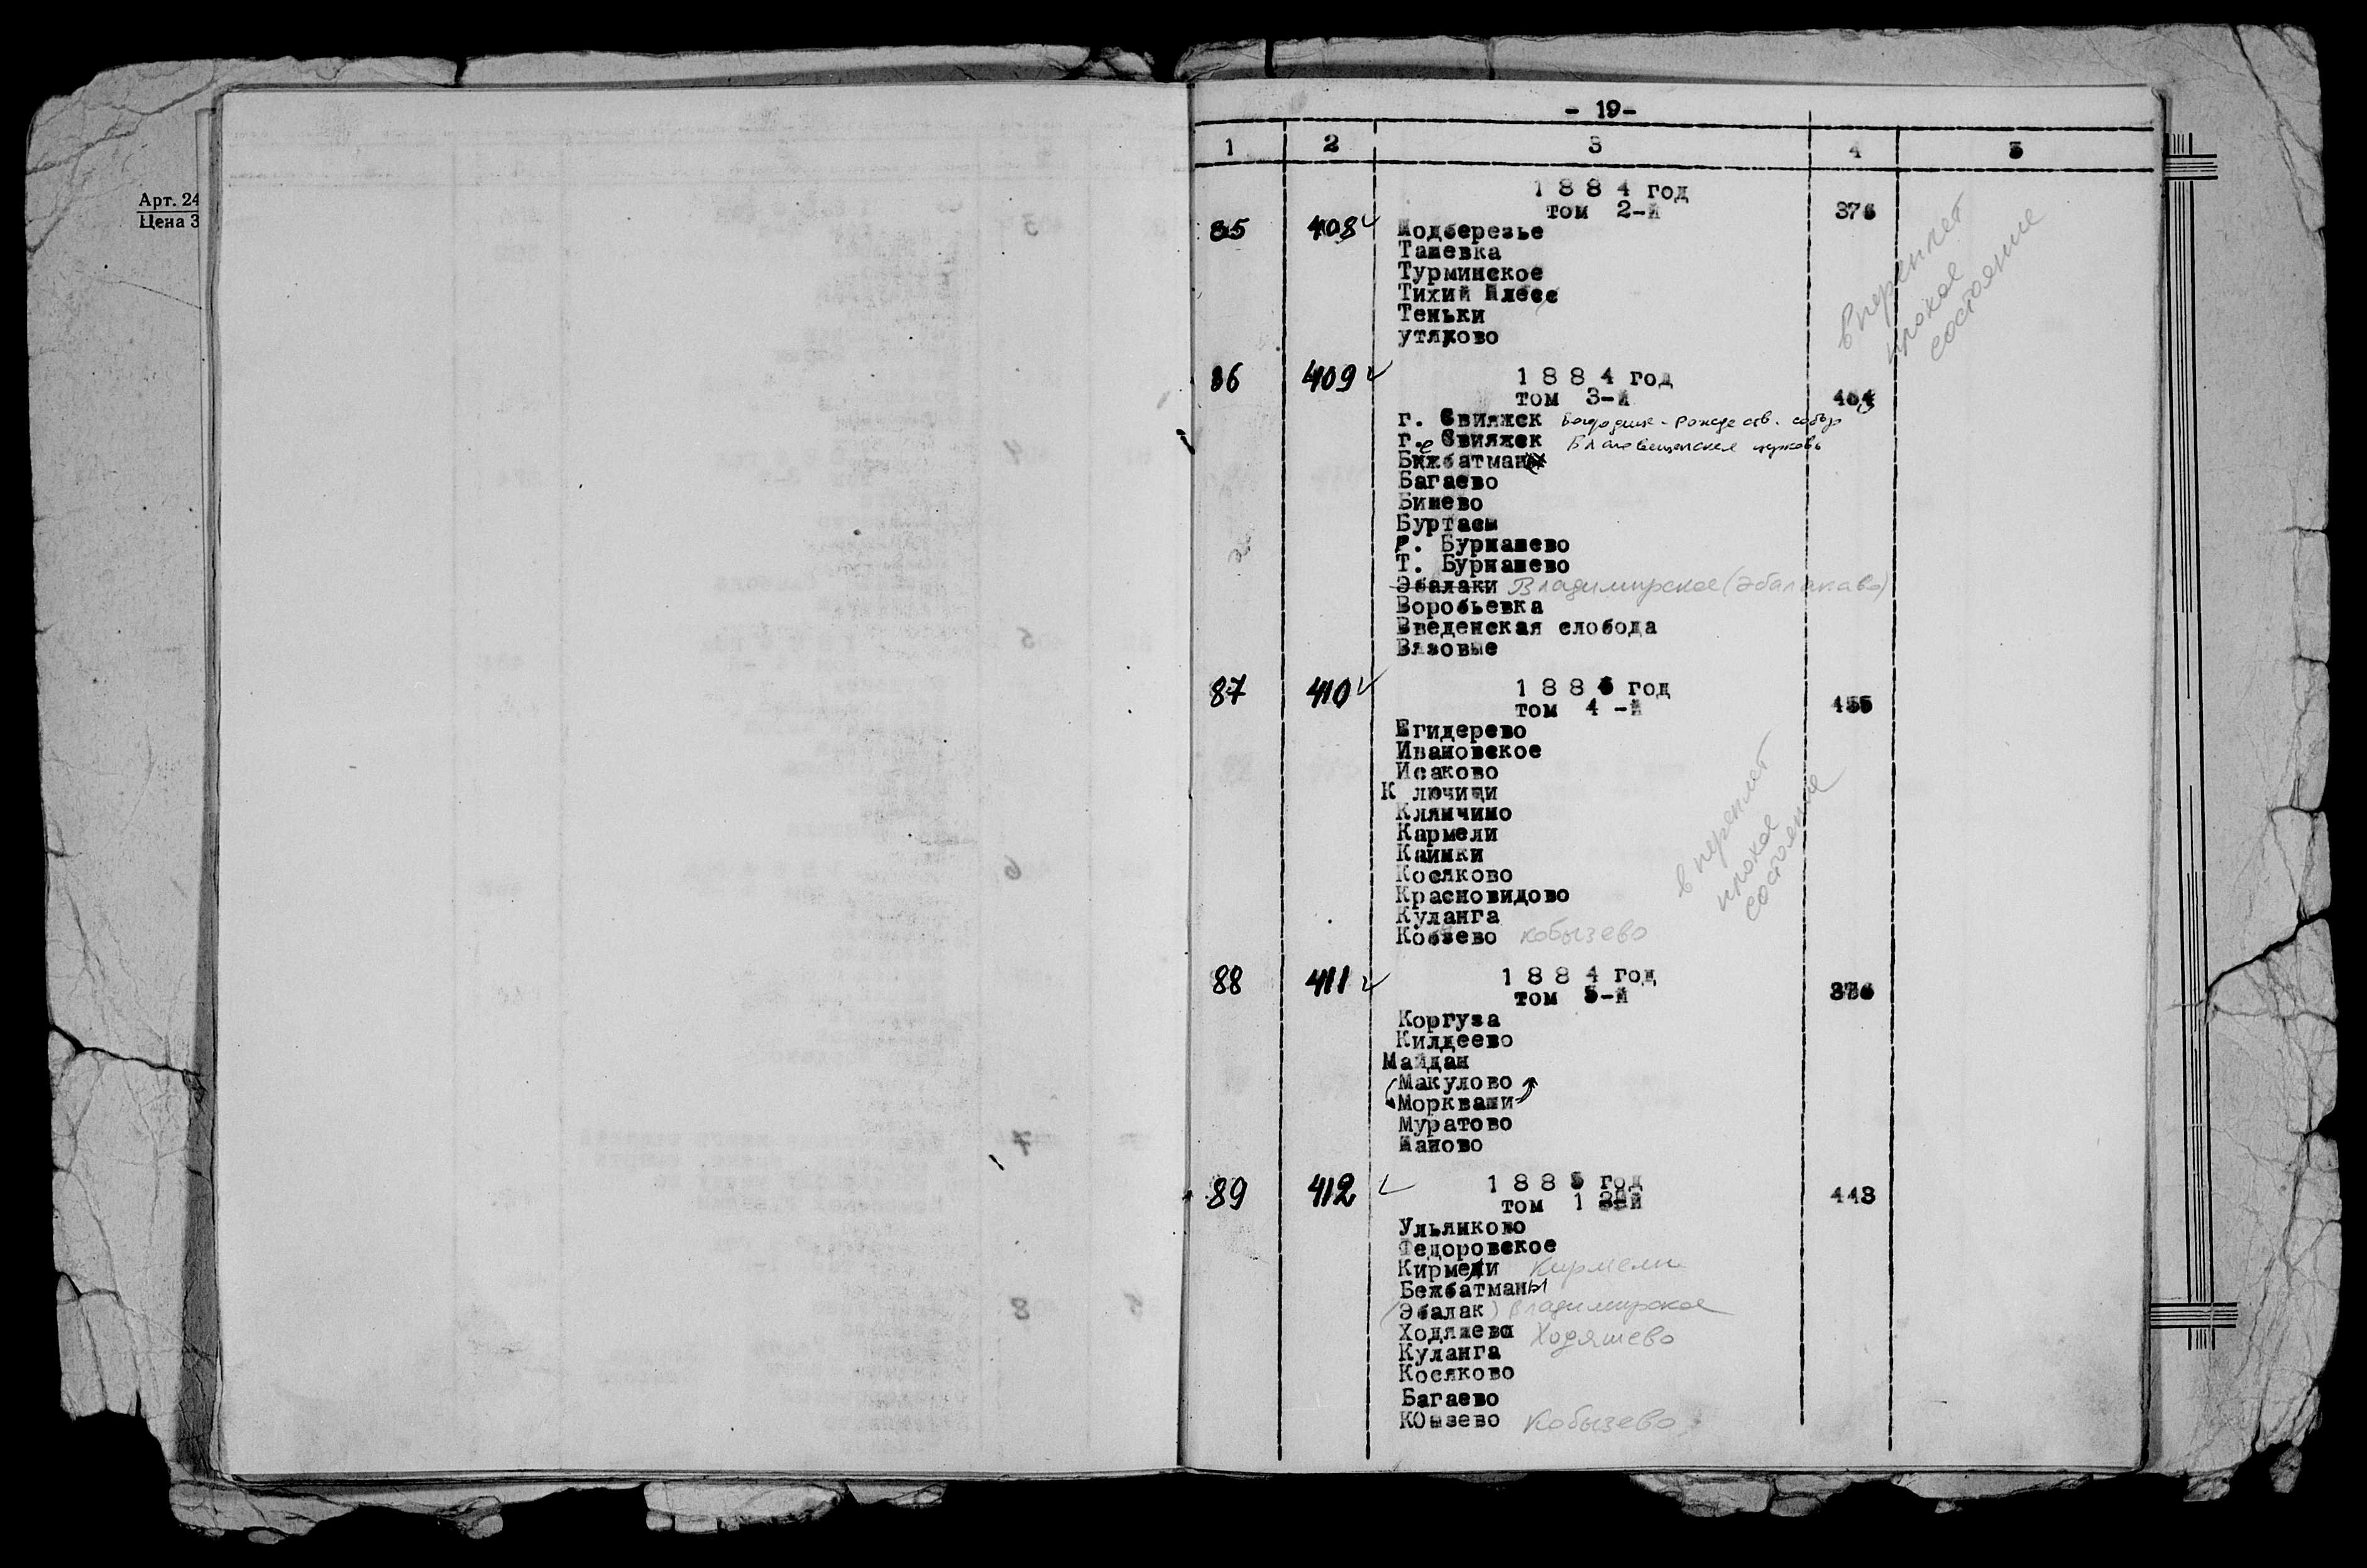 Арт. 24
Цена 3
- 19-
1 2 3 4 5
1 8 8 4 год
том 2-й 376
85 408 Подберезье
Ташевка
Турминское
Тихий Плесс
Теньки
утяково
в переплет
плохое
состояние
86 409 1 8 8 4 год
том 3-й 464
г. Свияжск Богородице-Рождеств. собор
г. Свияжск Благовещенская церковь
Бежбатман
Багаево
Бишево
Буртасы
Р. Бурнашево
Т. Бурнашево
Эбалаки Владимирское (Эбалаково)
Воробьевка
Введенская слобода
Вязовые
87 410 1 8 8 год
том 4 -й 455
Егидерево
Ивановское
Исаково
К лючищи
Клянчино
Кармели
Каинки
Косяково
Красновидово
Куланга
Кобзево Кобызево
в переплет
плохое
состояние
88 411 1 8 8 4 год
том 5-й 376
Коргуза
Килдеево
Майдан
Макулово
Моркваши
Муратово
Маново
89 412 1 8 8 5 год
том 1 443
Ульянково
Федоровское
Кирмели Кирмели
Бежбатманы
(Эбалак) Владимирское
Ходяшево Ходяшево
Куланга
Косяково
Багаево
КОызево Кобызево